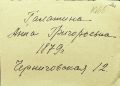 Галатина
Анна Григорьевна
1879г.
Черниговская 12.